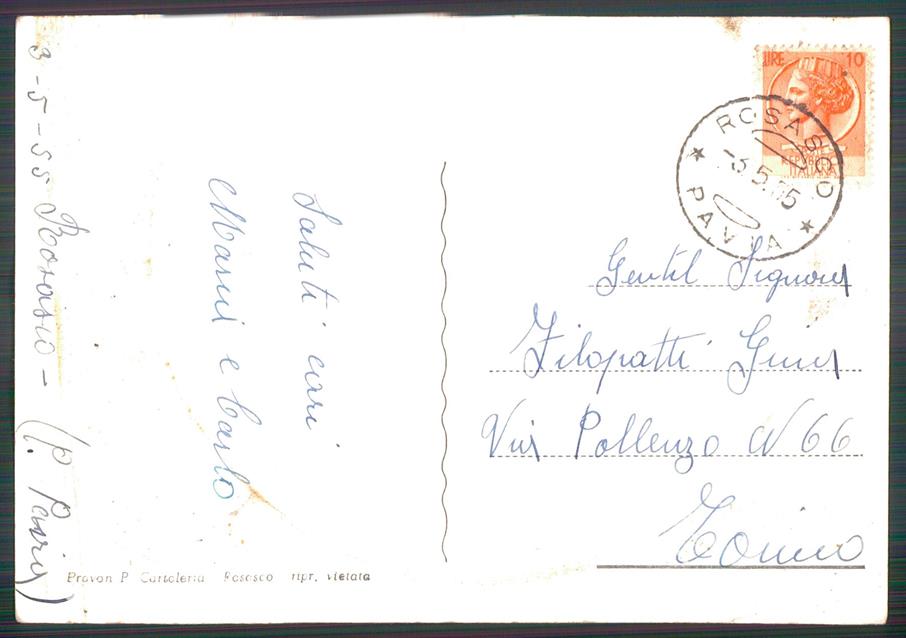 3-5-55 Rosasco - (p. Pavia)
Saluti cari
e Carlo
Provon P Cartoleria Rosasco ripr. vietata
LIRE 10
REPUBBLICA
ITALIANA
ROSASCO
-3.5.55
PAVIA
Gentil Signora
Filopatti
Via Pollenzo N 66
Torino